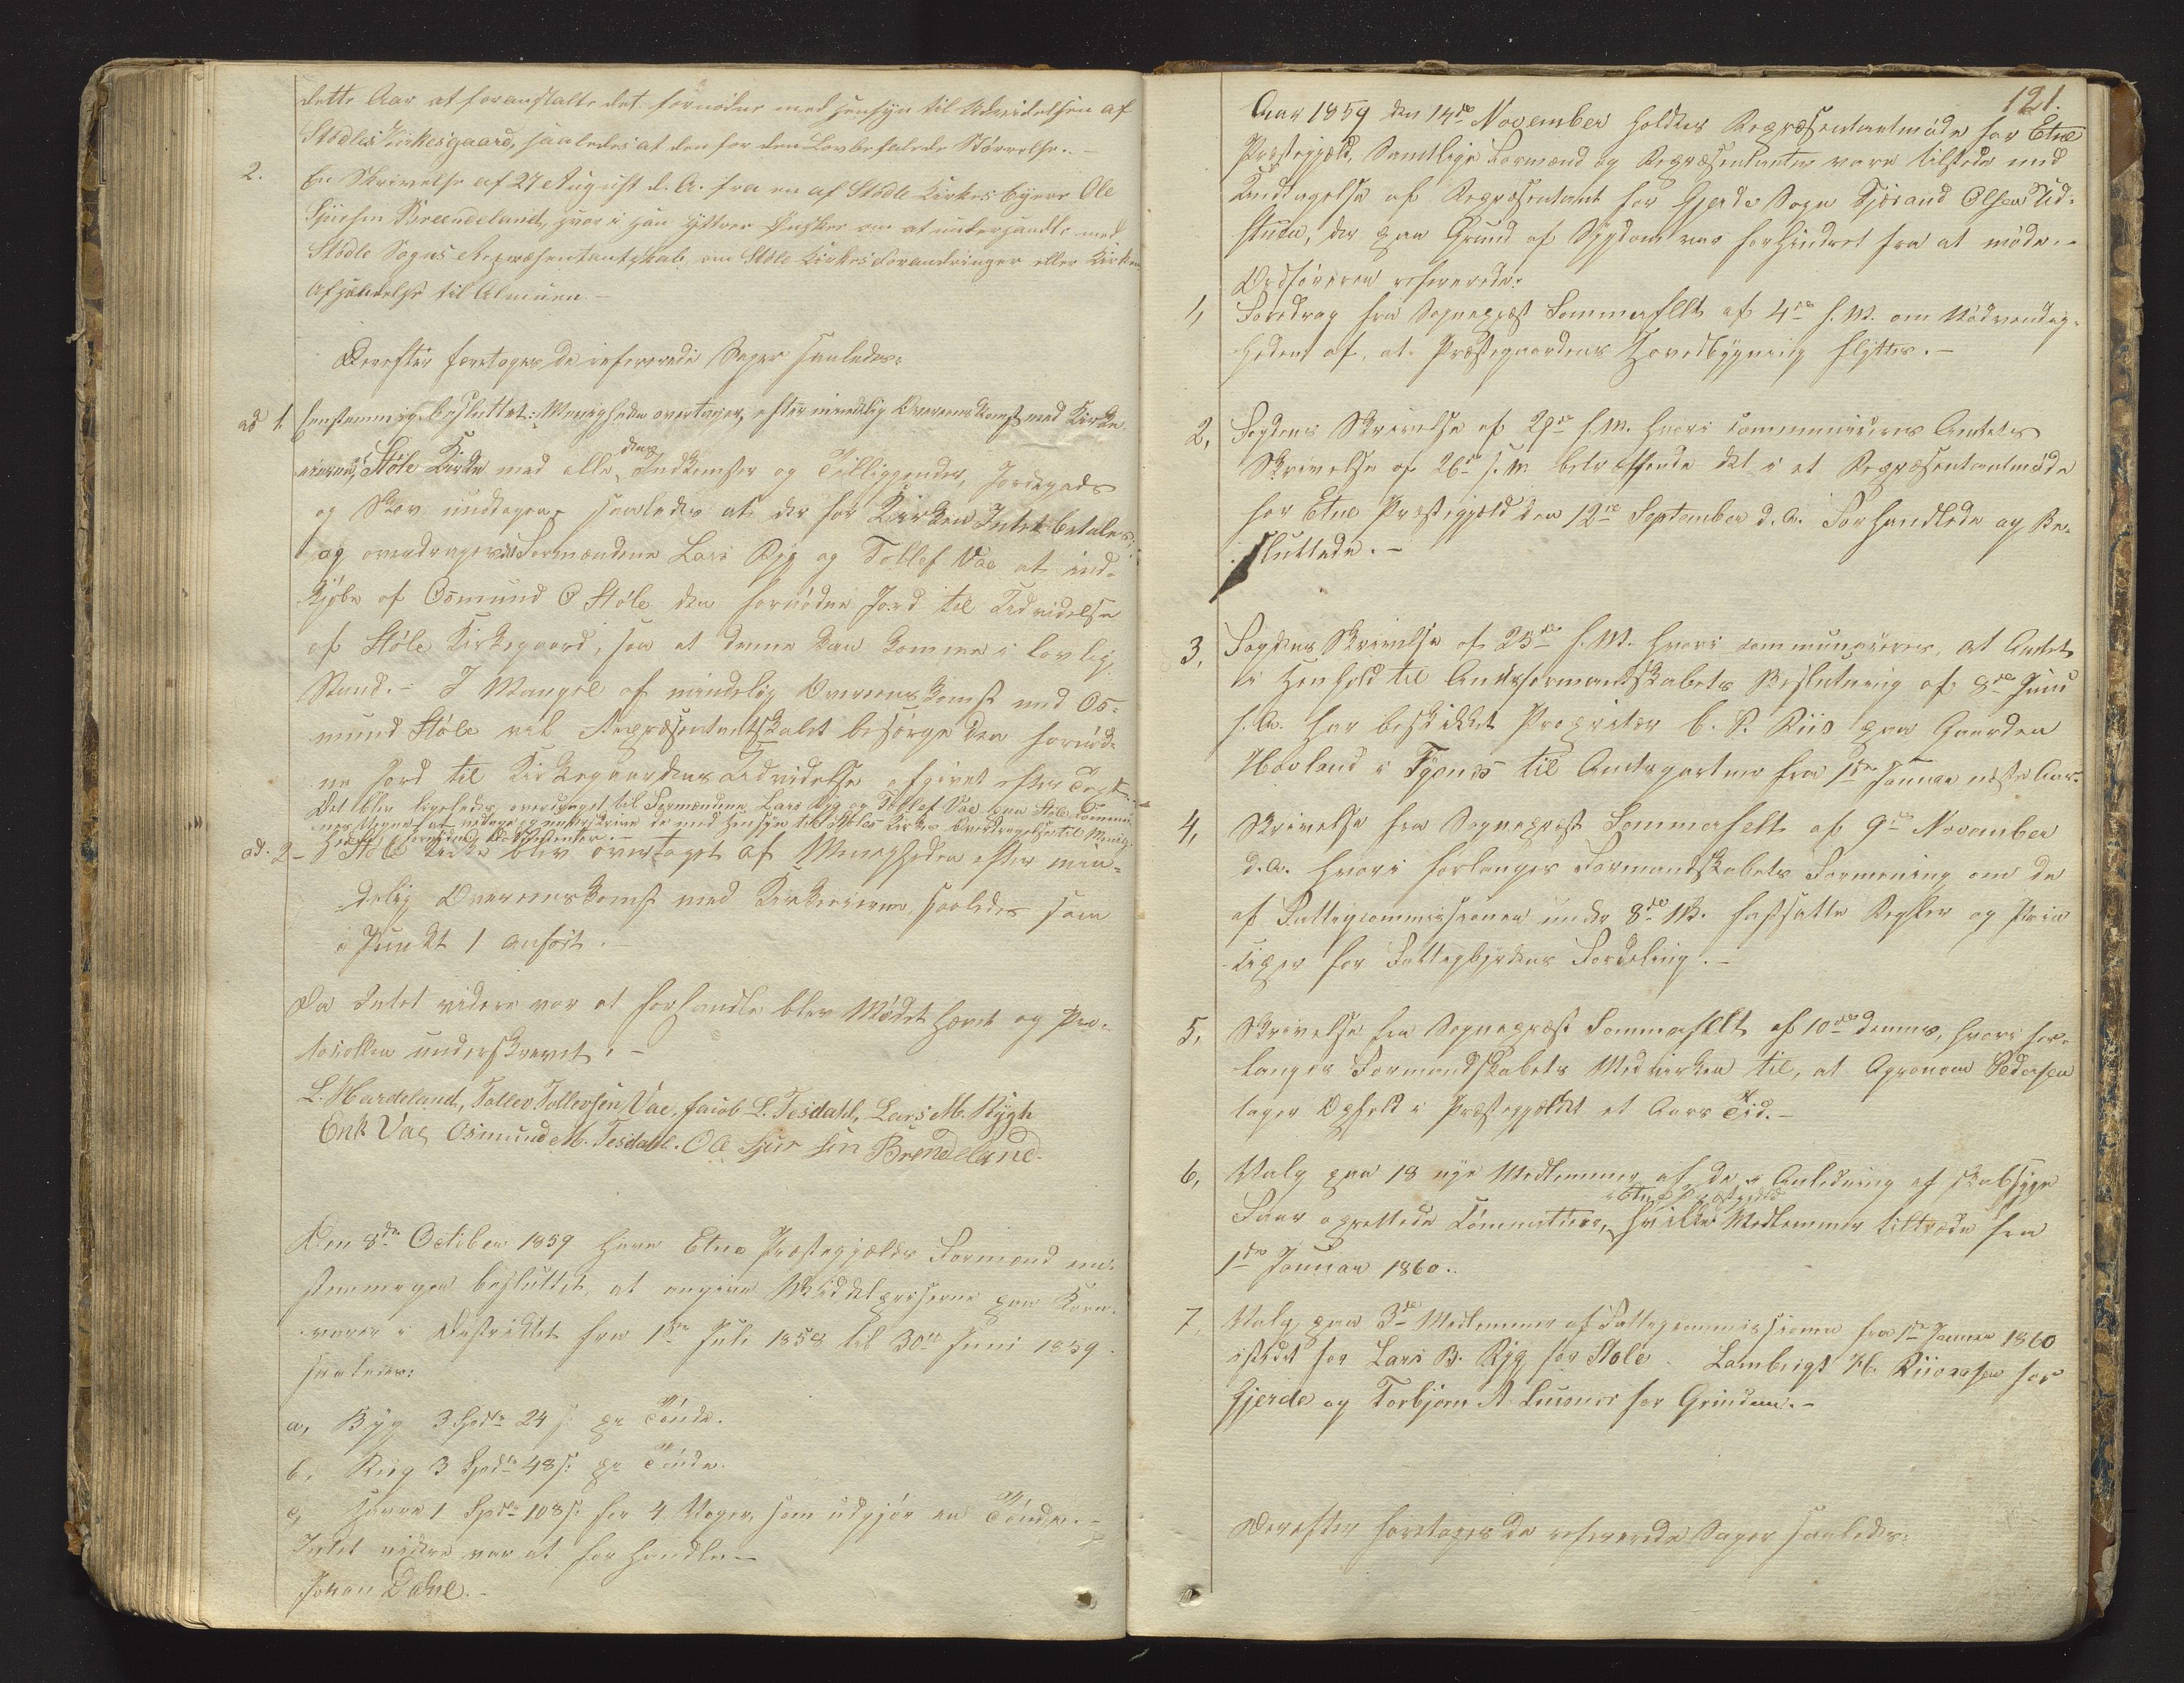 dette Aar at foranstalte det fornødne med Hensyn til Udvidelsen af
Stødles Kirkesgaard, saaledes at den for den Lovbefalede Størrelse. -
2. En Skrivelse af 27 August d. A. fra en af Stødle Kirkes Ejere Ole
Sjursen Breendeland, hvori han yttrer Ønsker om at underhandle med
Stødle Sogns Repræsentantskab om Støle Kirkes Forandringer eller Kirkens
Afhændelse til Almuen. -
Derefter foretoges de refererede Sager saaledes:
ad 1. Eenstemmig besluttet: Menigheden overtager, efter mindelig Overeenskomst med Kirke-
eierne, Støle Kirke med alle dens Indkomster og Tilliggender, Jordegods
og Skov undtagen, saaledes at der for Kirken Intet betales;
og overdrages til Formændene Lars Ryg og Tollef Vae at ind-
kjøbe af Osmund O Støle den fornødne Jord til Udvidelse
af Støle Kirkegaard, saa at denne kan komme i lovlig
Stand. - I Mangel af mindelig Overeenskomst med Os-
mund Støle vil Repræsentantskabet besørge den fornød-
ne Jord til Kirkegaardens Udvidelse afgivet efter Taxt. -
Det blev ligeledes overdraget til Formændene Lars Ryg og Tollef Vae paa Støle Commu-
nes Vegne at vedtage og underskrive de med Hensyn til Støles Kirkes Overdragelse til Menig-
heden fornødne Documenter. -
ad. 2 - Støle Kirke blev overtaget af Menigheden efter min-
delig Overeenskomst med Kirkeeierne, saaledes som
i Punkt 1 anført. -
Da Intet videre var at forhandle blev Mødet hævet og Pro-
tocollen underskrevet. -
L. Hardeland, Tollev Tollevsen Vae, Jacob L. Tesdahl, Lars M. Rygh
Erik Vae, Osmund M. Tesdahl. Ole Sjursen Brendeland.
Den 8de October 1859 have Etne Præstegjælds Formænd een-
stemmigen besluttet, at angive Middelpriserne paa Korn-
varer i Distriktet fra 1ste Juli 1858 til 30te Juni 1859.
saaledes:
a, Byg 3 Spdlr 24 s. pr Tønde.
b, Rug 3 Spdlr 48 s. pr Tønde.
c, Havre 1 Spdlr 108 s. for 4 Voger, som udgjør en Tønde. -
Intet videre var at forhandle. -
Johan Dahl. -
121.
Aar 1859 den 14de November holdtes Repræsentantmøde for Etne
Præstegjæld, Samtlige Formænd og Repræsentanter vare tilstede med
Undtagelse af Repræsentant for Gjerde Sogn Tjærand Olsen Ud-
stuen, der paa Grund af Sygdom var forhindret fra at møde. -
Ordføreren refererede:
1, Foredrag fra Sognepræst Sommerfeldt af 4de f. M. om Nødvendig-
heden af, at Præstegaardens Hovedbygning flyttes. -
2, Fogdens Skrivelse af 29de f. M. hvori communiceres Amtets
Skrivelse af 26de s. M betræffende det i et Repræsentantmøde
for Etne Præstegjæld den 12te September d. A. Forhandlede og Be-
sluttede. -
3, Fogdens Skrivelse af 25de f. M. hvori communiceres, at Amtet
i Henhold til Amtsformandskabets Beslutning af 8de Juni
f. A. har beskikket Proprietær C. P. Riis paa Gaarden
Hovland i Tysnes til Amtsgartner fra 1ste Januar næste Aar.
4, Skrivelse fra Sognepræst Sommerfelt af 9de November
d. A. hvori forlanges Formandskabets Formening om de
af Fattigcommissionen under 8de M. fastsatte Regler og Prin
ciper for Fattigbyrdens Fordeling. -
5, Skrivelse fra Sognepræst Sommerfeldt af 10de dennes, hvori for-
langes Formandskabets Medvirken til, at Agronom Pedersen
tager Ophold i Præstegjældet et Aars Tid. -
6, Valg paa 18 nye Medlemmer af de i Anledning af skabsyge
i Etne Præstegjeld
Faar oprettede Committeer, hvilke Medlemmer tiltræde fra
1ste Januar 1860..
7, Valg paa 3de Medlemmer af Fattigcommissionen fra 1ste Januar 1860
istedet for Lars B. Ryg for Støle. Lambrigt H. Riiversen for
Gjerde og Torbjørn A Lussnes for Grindem. -
Derefter foretoges de refererede Sager saaledes: